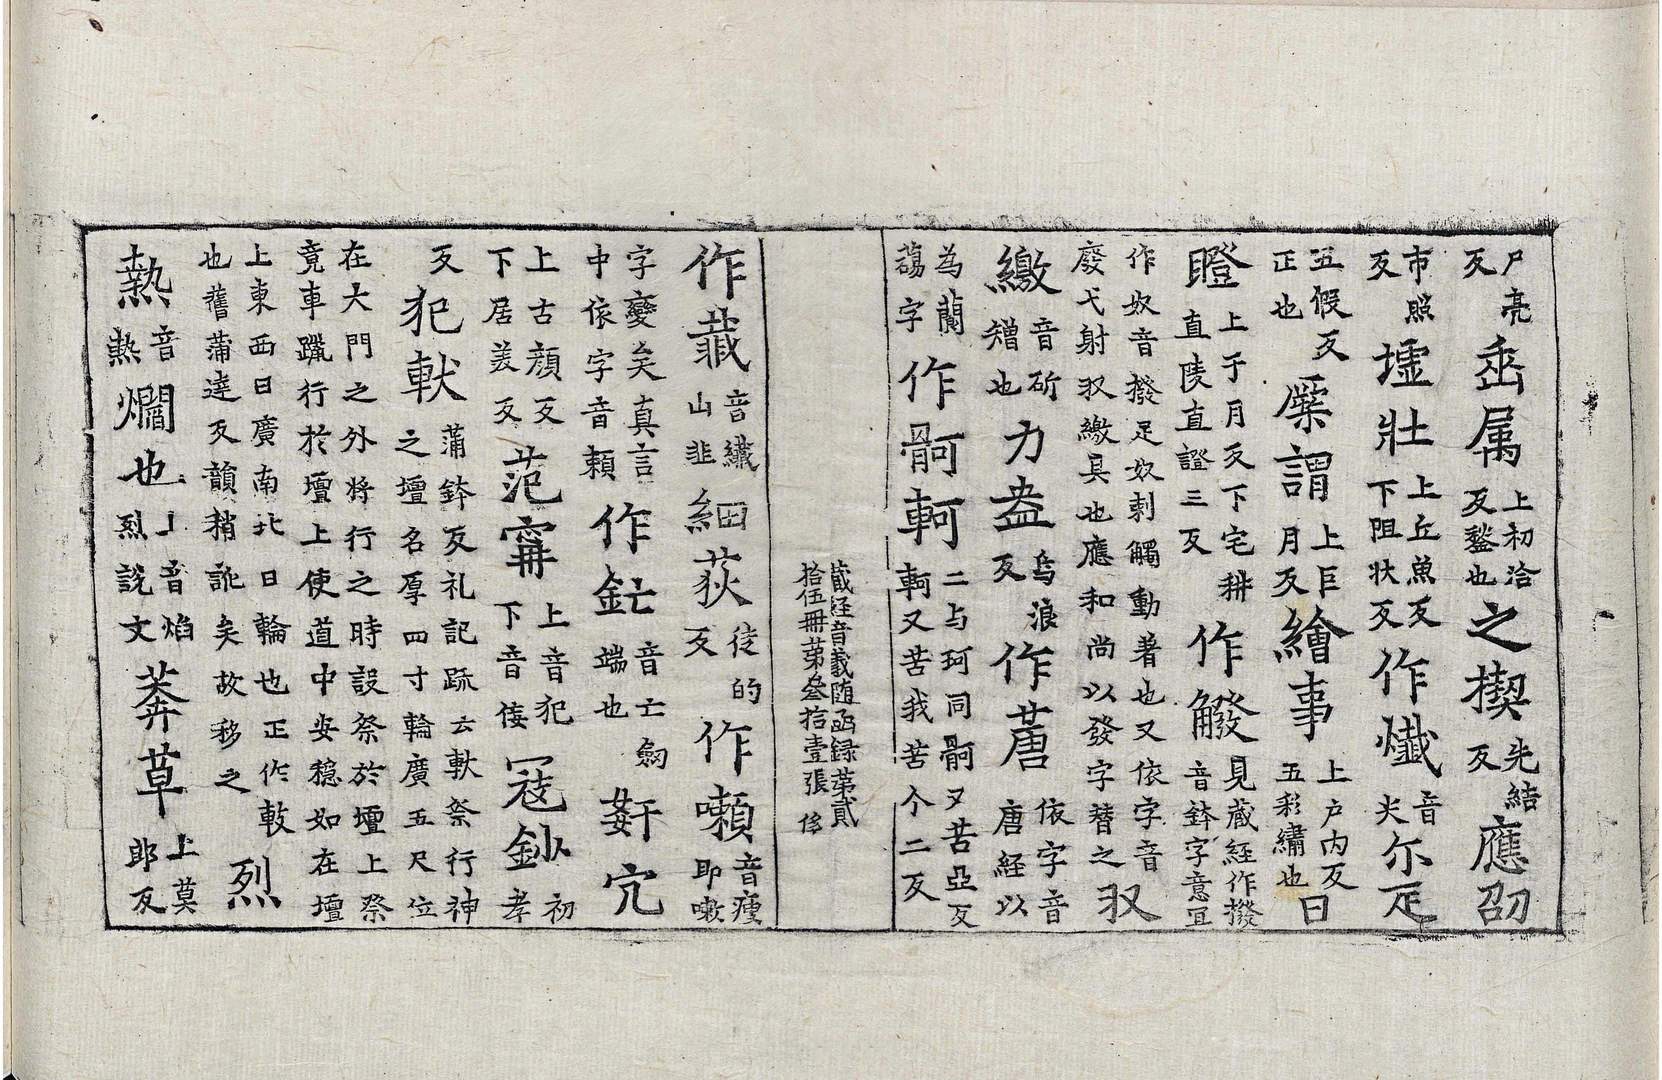 尸亮反臿属上初洽反鍫也之揳先結反應卲
市照反墟壯上丘魚反下阻狀反作㦰音尖尔疋
五假反正也㯺謂上巨月反繪事上户内反五彩繡也曰
瞪上于月反下宅耕直陵直證三反作觼見蔵經作撥音鉢字意宜
作奴音撥足奴剌觸動著也又依字音廢弋射㕛繳具也應和尚以發字替之㕛
繳音斫矰也力盎烏浪反作䔈依字音唐經以
為蘭蘮字作㱒軻二与珂同㱒又苦亞反軻又苦我苦个二反
蔵経音義随函録第貳拾伍冊第叄拾壹張 俢
作韱音纖山韭細荻徒的反作嚬音瘦即嗽
字變矣真言中依字音頼作鋩音亡端也姧宄
上古顔反下居美反范甯上音犯下音佞冦鈔初孝
反犯軷蒲鉢反礼記䟽云軷祭行神之壇名厚四寸輪廣五尺位
在大門之外將行之時設祭於壇上祭竟車躐行於壇上使道中安穏如在壇
上東西曰廣南北曰輪也正作軷也舊蒲達反韻稍訛矣故移之烈
熱音熱爓也上音焰烈說文莽草上莫郎反